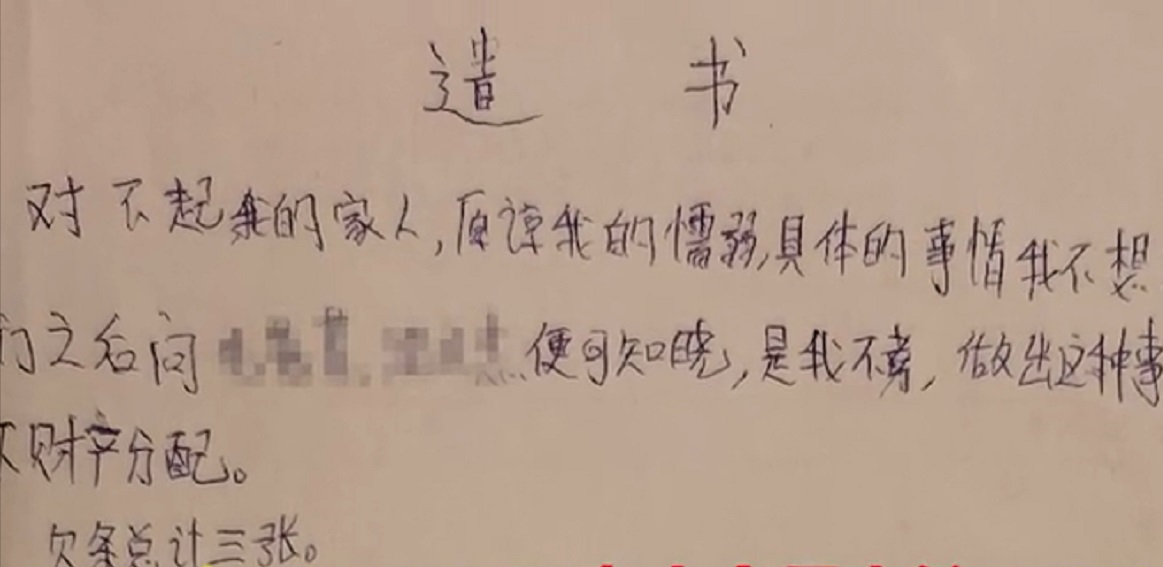 遗 书
对不起我的家人,原谅我的懦弱,具体的事情我不想
们之后问 便可知晓,是我不孝,做出这种事
财产分配。
欠条总计三张。